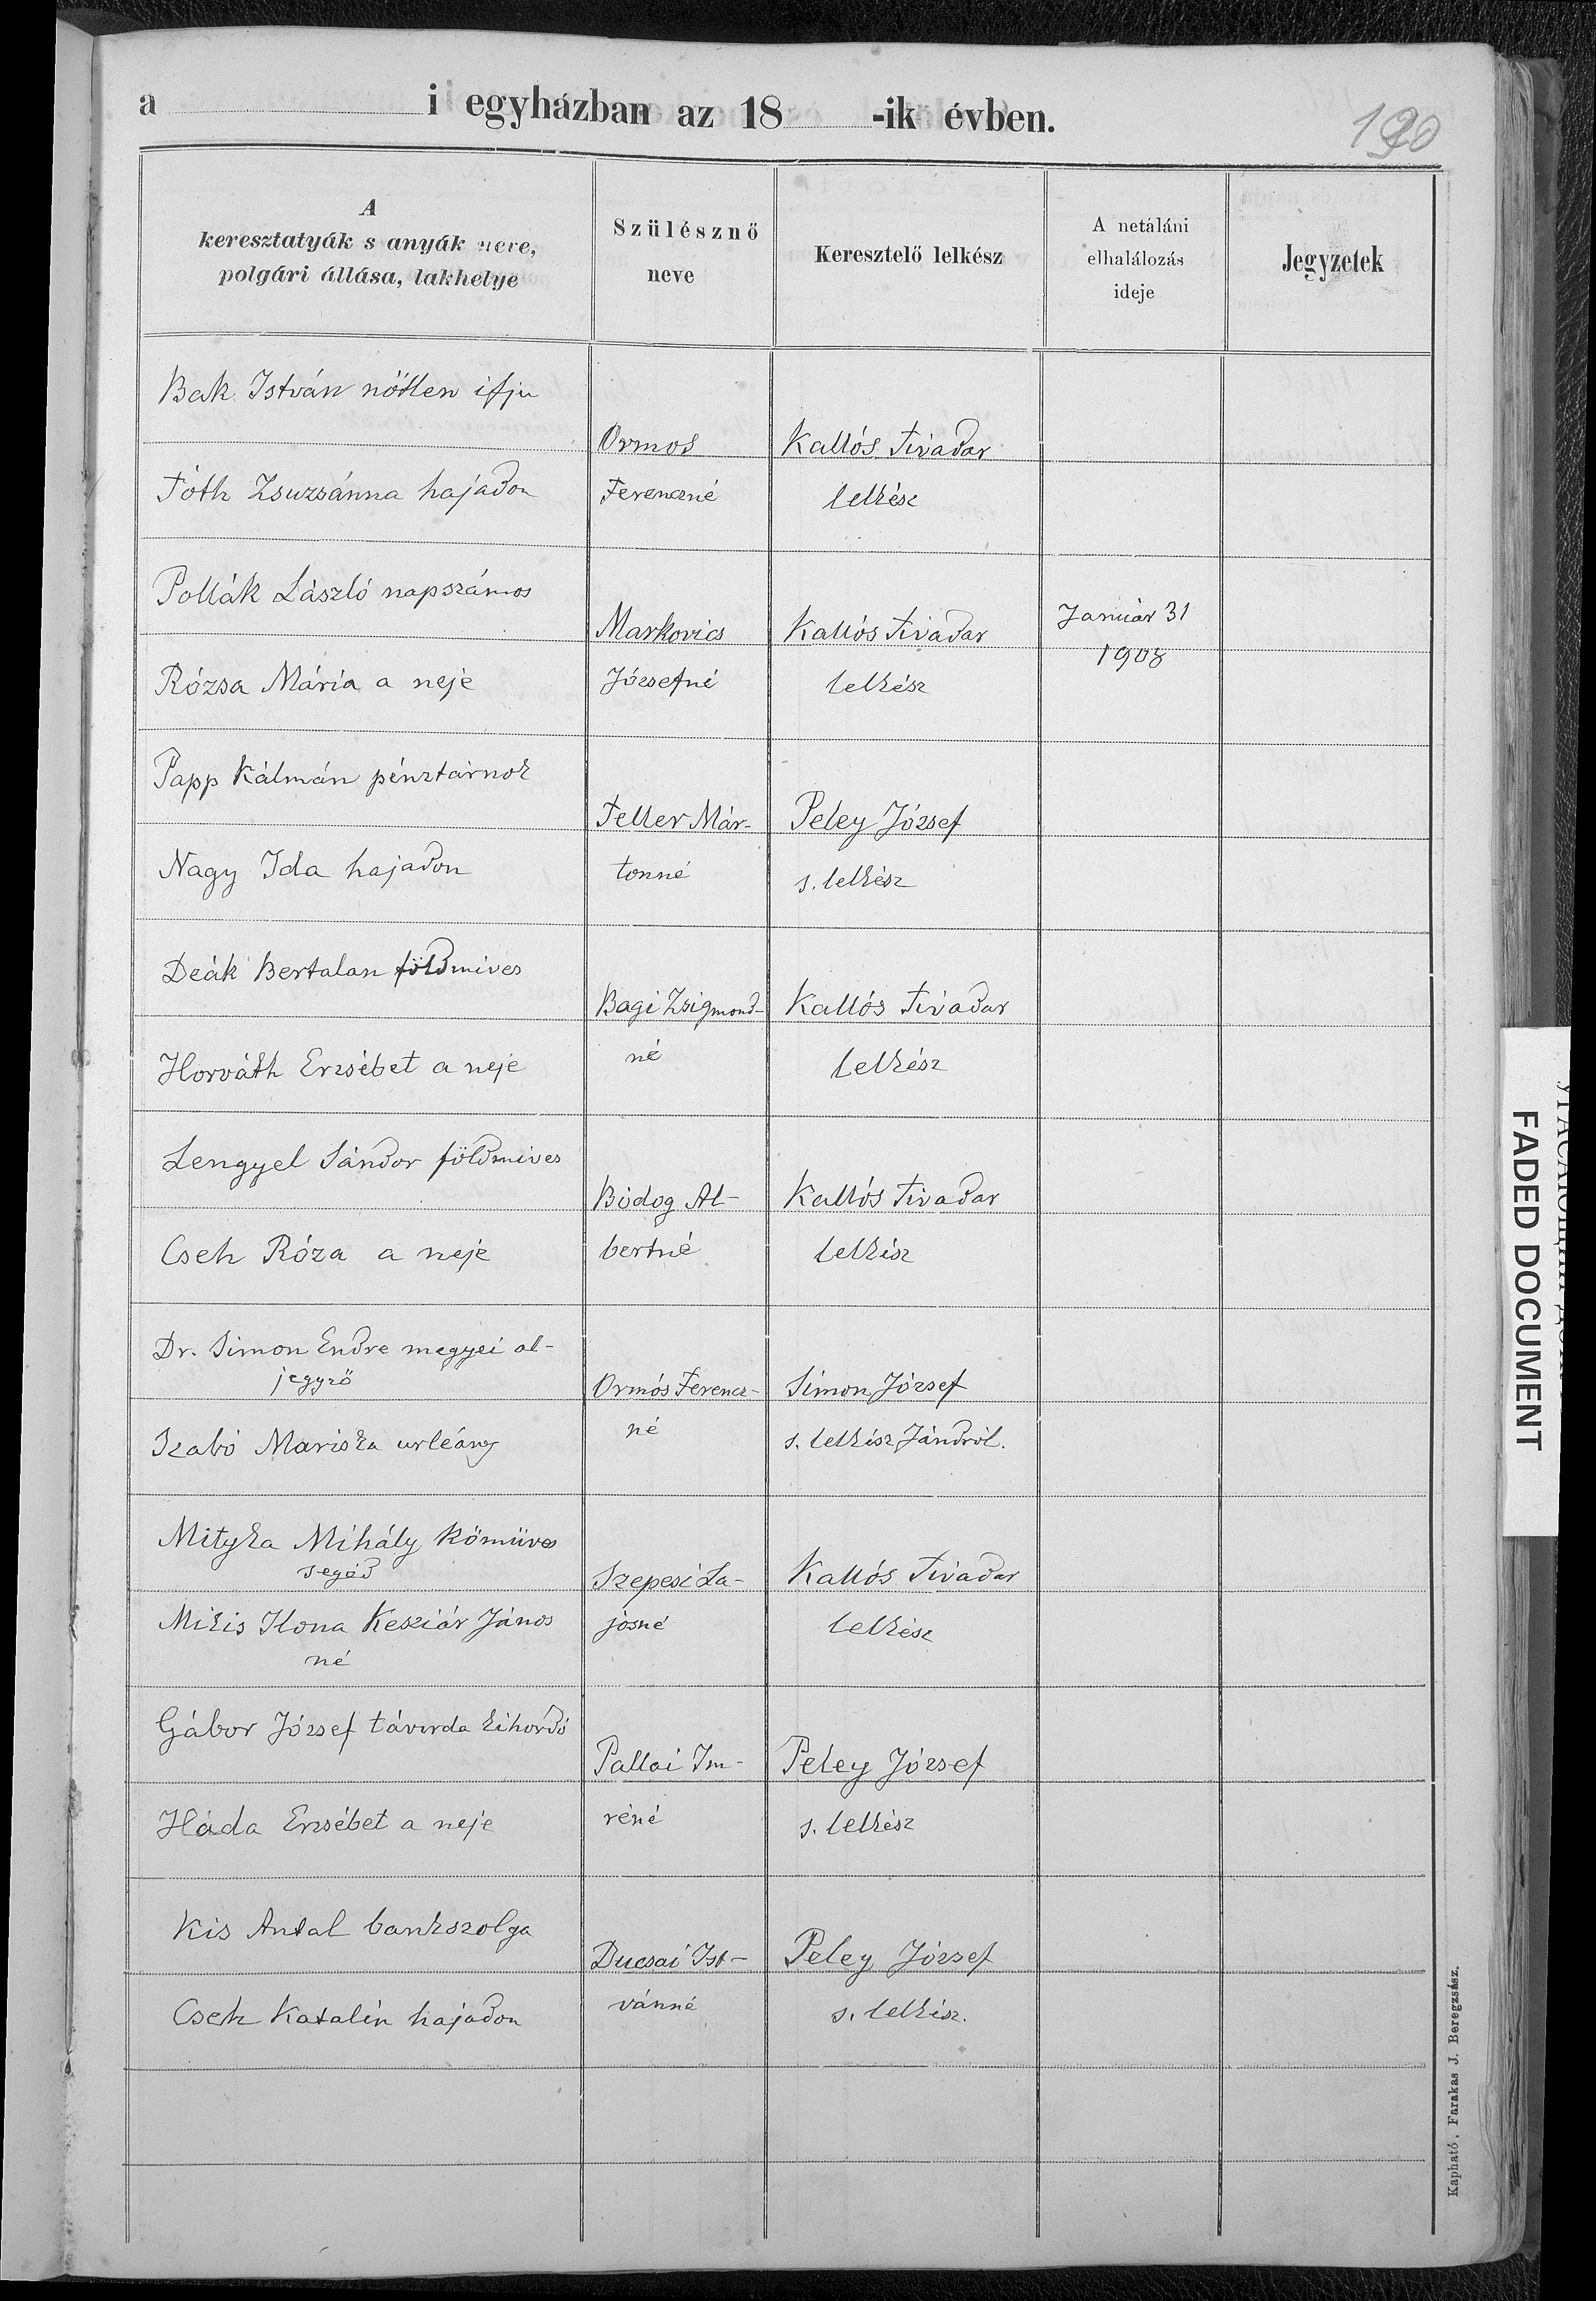 a i egyházban az 18 -ik évben.
190
A
keresztatyák s anyák neve,
polgári állása, lakhelye
Szülésznő
neve
Keresztelő lelkész
A netáláni
elhalálozás
ideje
Jegyzetek
Bak István nőtlen ifju
Ormos
Kallós Tivadar
Tóth Zsuzsánna hajadon
Ferenczné
lelkész
Pollák László napszámos
Markovics
Kallós Tivadar
Január 31
1908
Rózsa Mária a neje
Józsefné
lelkész
Papp Kálmán pénztárnok
Teller Már-
Peley József
Nagy Ida hajadon
tonné
s. lelkész
Deák Bertalan földmives
Bagi Zsigmond-
Kallós Tivadar
Horváth Erzsébet a neje
né
lelkész
Lengyel Sándor földmives
Bódog Al-
Kallós Tivadar
Cseh Róza a neje
bertné
lelkész
Dr. Simon Endre megyei al-
jegyző
Ormós Ferencz-
Simon József
Szabó Mariska urleány
né
s. lelkész Jándról.
Mityka Mihály kőmüves
segéd
Szepesi La-
Kallós Tivadar
Mikis Ilona Kesziár János
né
josné
lelkész
Gábor József távirda kihordó
Pallai Im-
Peley József
Háda Erzsébet a neje
réné
s. lelkész
Kis Antal bankszolga
Ducsai Ist-
Peley József
Cseh Katalin hajadon
vánné
s. lelkész.
Kapható, Farakas J. Beregzsász.
FADED DOCUMENT